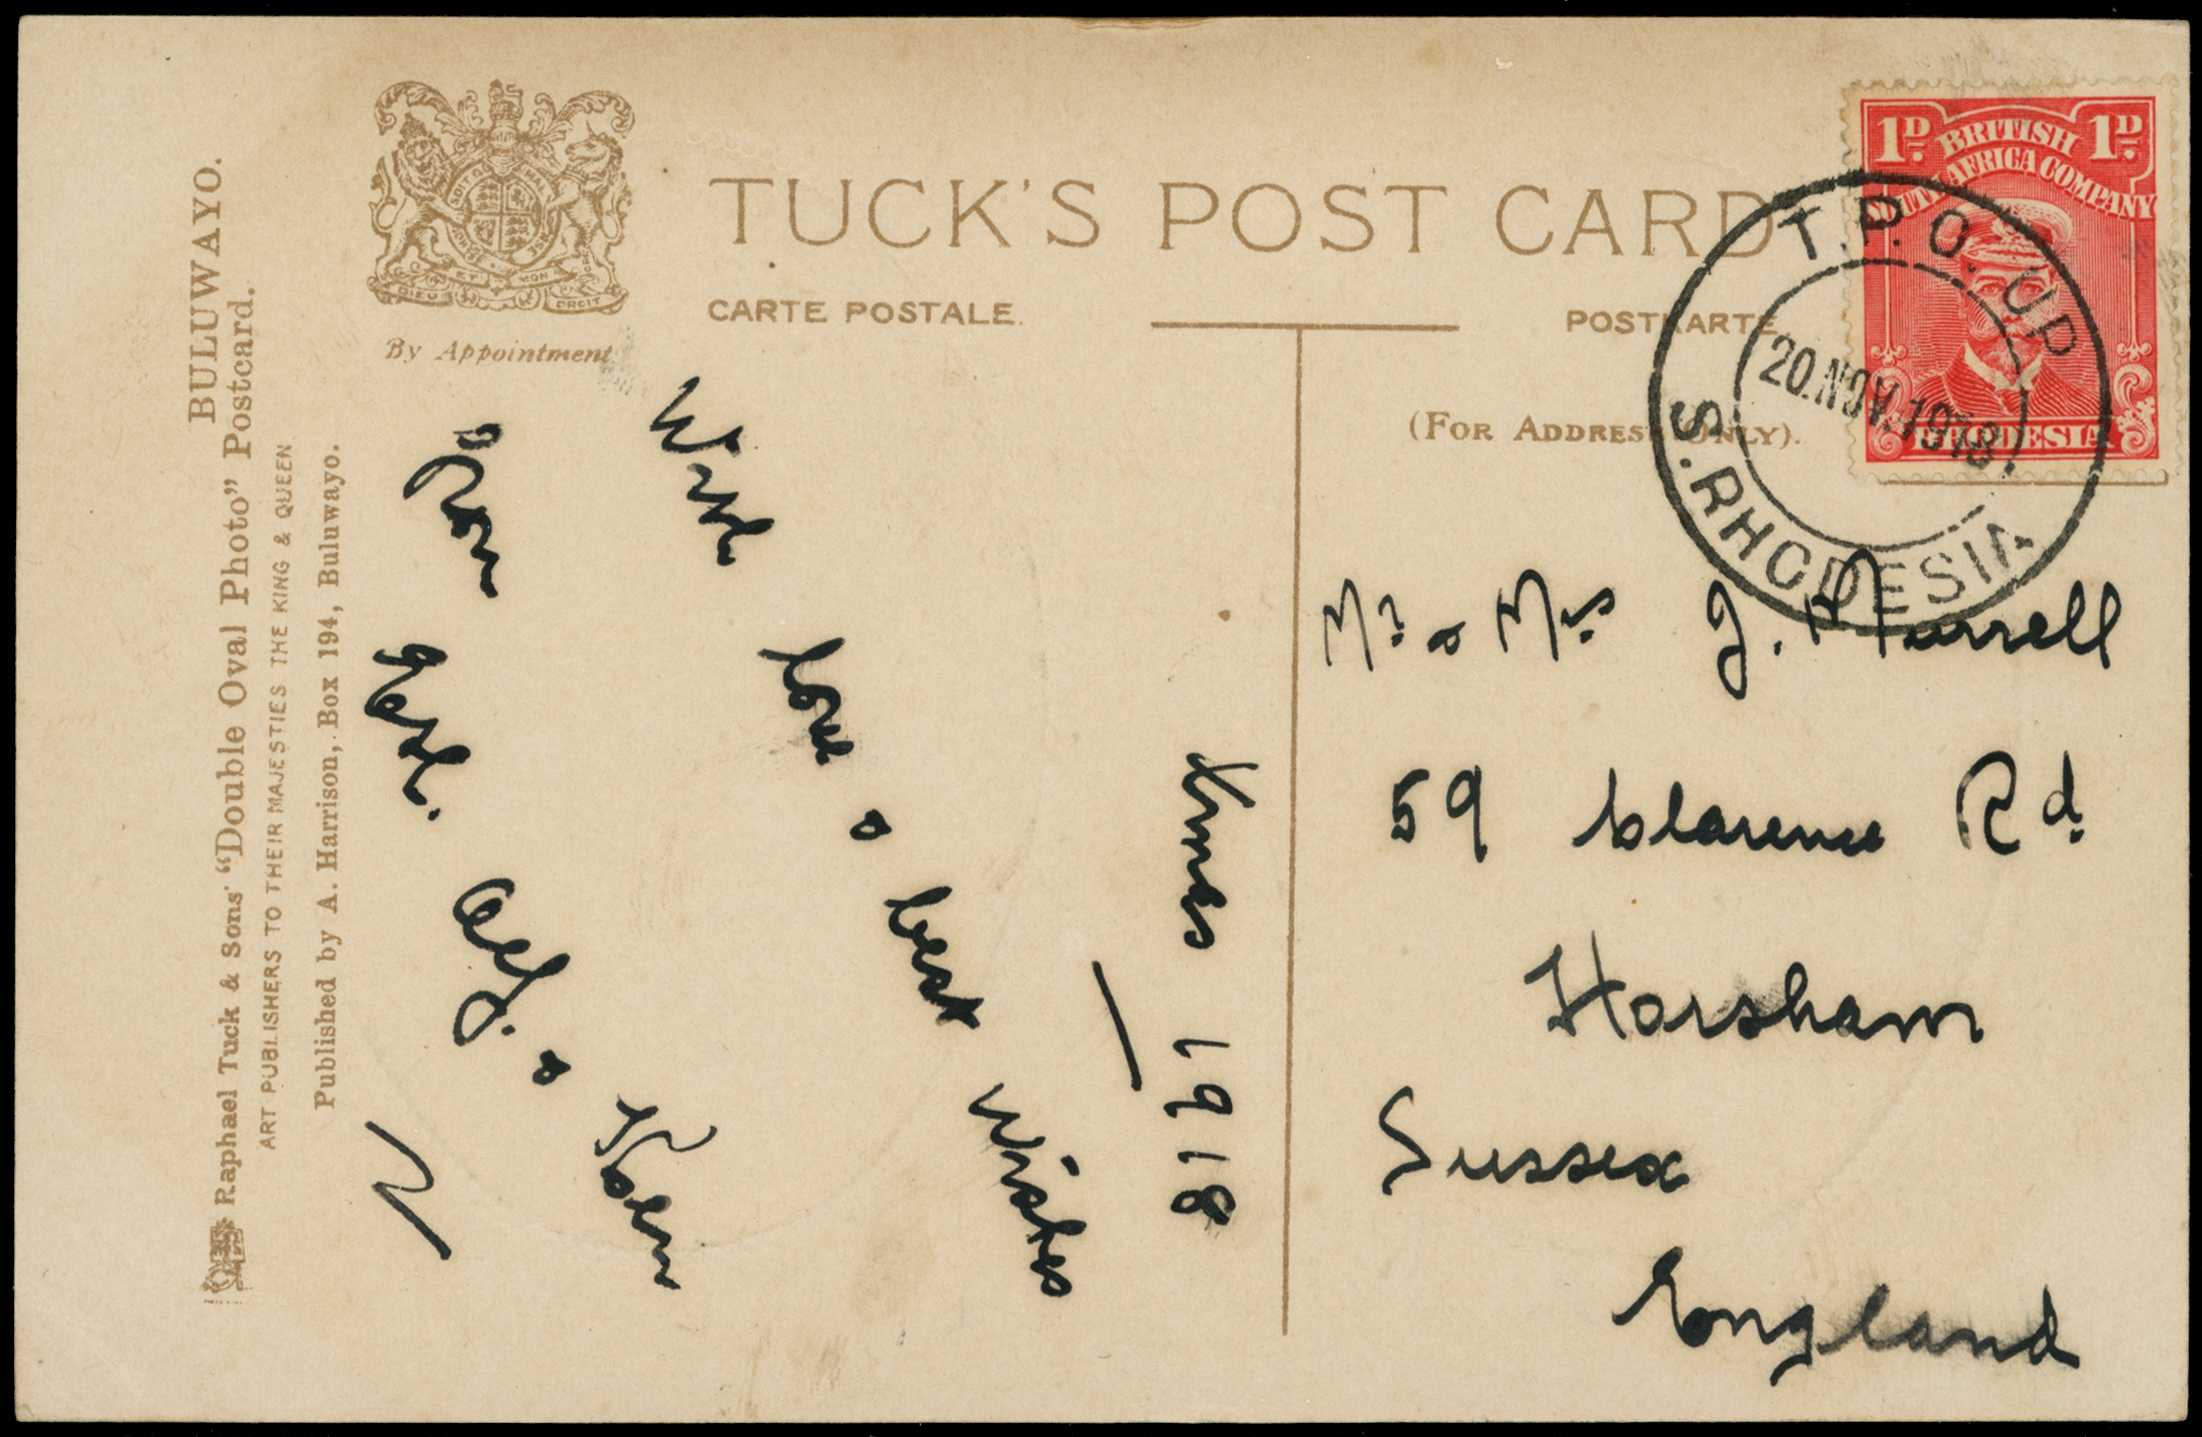 BULUWAYO.
Raphael Tuck & Sons' “Double Oval Photo” Postcard.
ART PUBLISHERS TO THEIR MAJESTIES THE KING & QUEEN
Published by A. Harrison, Box 194, Buluwayo.
DIEU ET MON DROIT
By Appointment
TUCK'S POST CARD
CARTE POSTALE.
POSTKARTE
(FOR ADDRESS ONLY).
1D. 1D.
BRITISH
SOUTH AFRICA COMPANY
RHODESIA
T.P.O. UP
20.NOV.1918.
S.RHODESIA
Xmas 1918
With love & best wishes
from
Alf. &
Mr. & Mrs J. Murrell
59 Clarence Rd.
Horsham
Sussex
England